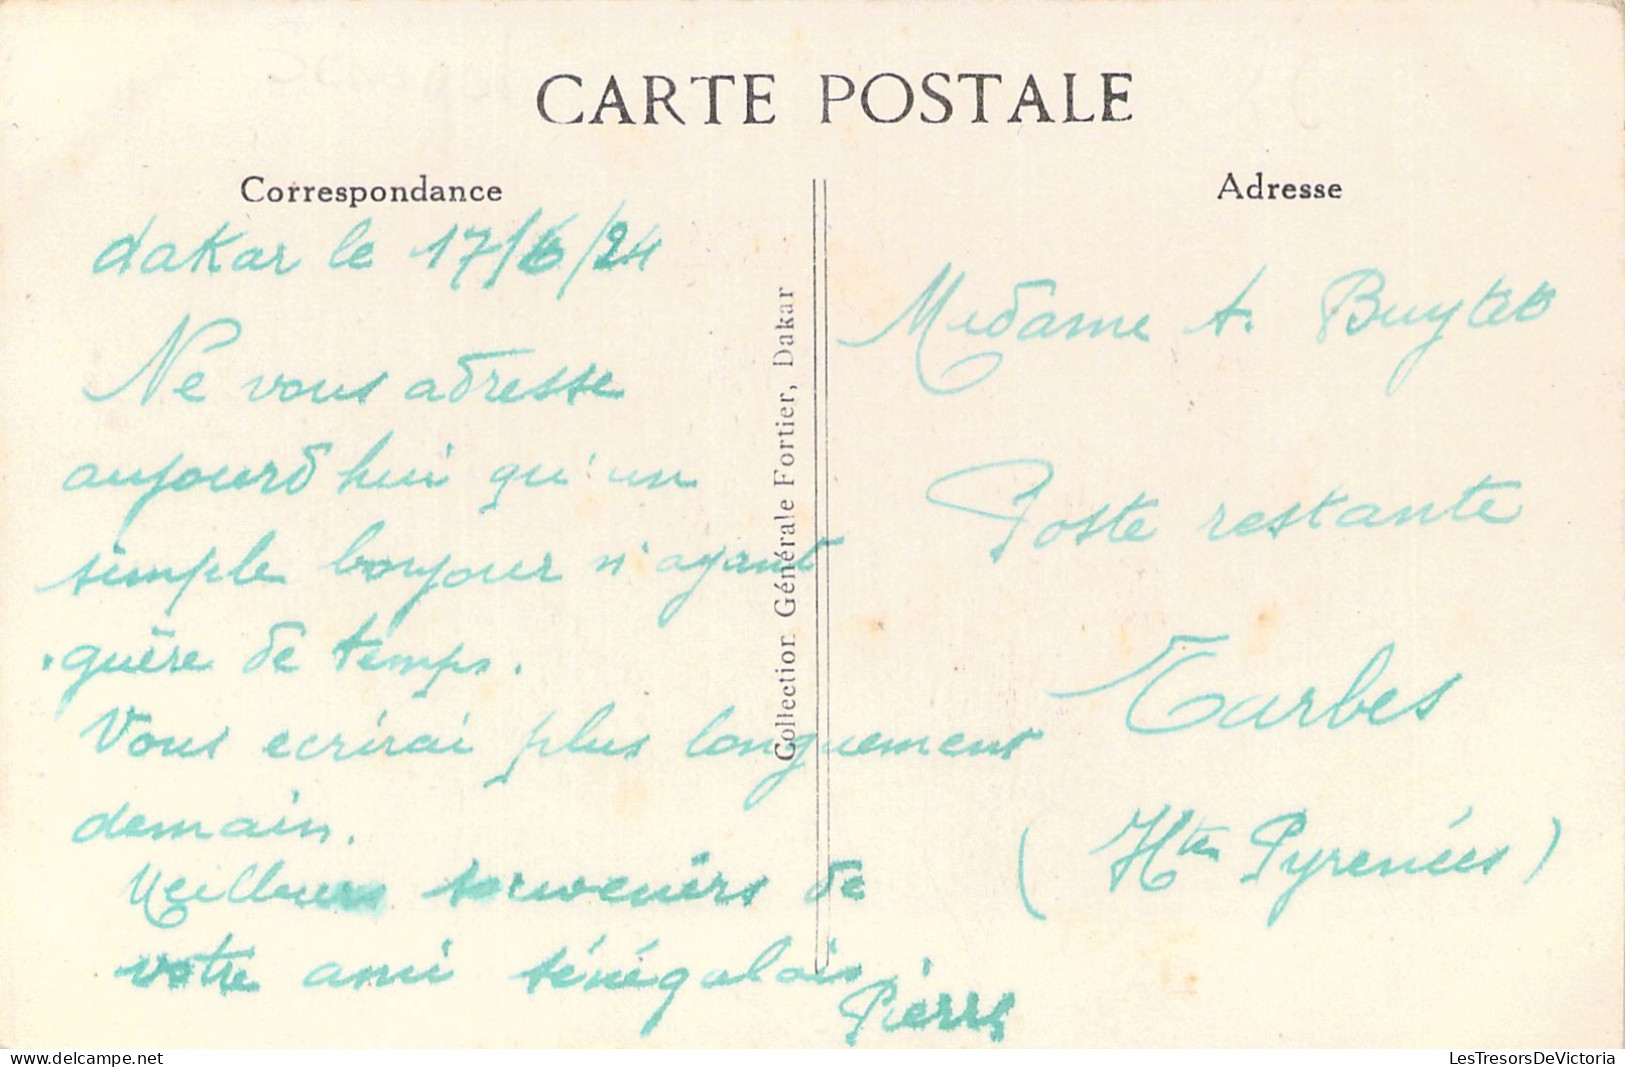 CARTE POSTALE
Correspondance
dakar le 17/6/24
Ne vous adresse
aujourd'hui qu'un
simple bonjour n'ayant
guère de temps.
Vous ecrirai plus longuement
demain.
Meilleurs souvenirs de
votre ami sénégalais
Pierre
Collection Générale Fortier, Dakar
Adresse
Madame A.
Poste restante
Tarbes
(Htes Pyrenées)
delcampe.net
LesTresorsDeVictoria